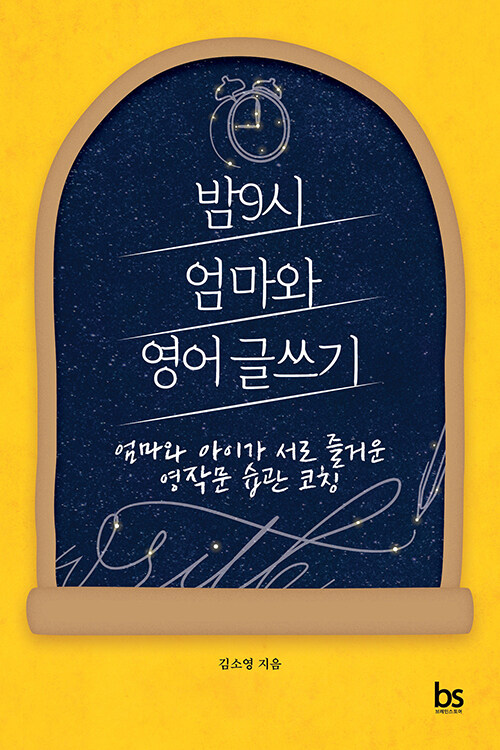 밤9시
엄마와
영어 글쓰기
엄마와 아이가 서로 즐거운
영작문 습관 코칭
write
김소영 지음
bs
브레인스토어